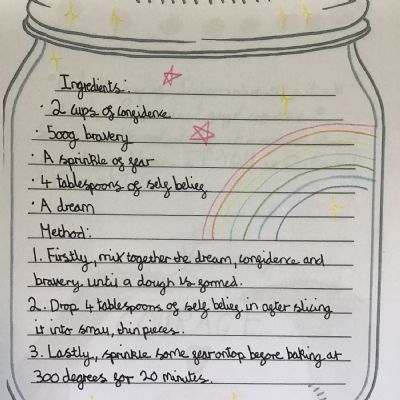 Ingredients:.
· 2 cups of confidence
· 500g bravery
· A sprinkle of fear
· 4 tablespoons of self belief
· A dream
Method:
1. Firstly, mix together the dream, confidence and
bravery until a dough is formed.
2. Drop 4 tablespoons of self belief in after slicing
it into small, thin pieces.
3. Lastly, sprinkle some fear ontop before baking at
300 degrees for 20 minutes.